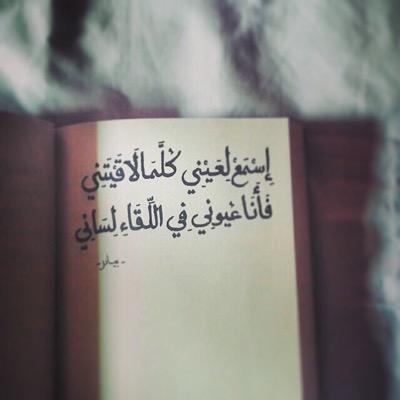 إِسْمَعْ لِعَيْنِي كُلَّمَا لَاقَيْتَنِي
فَأَنَا عُيُونِي فِي اللِّقَاءِ لِسَانِي